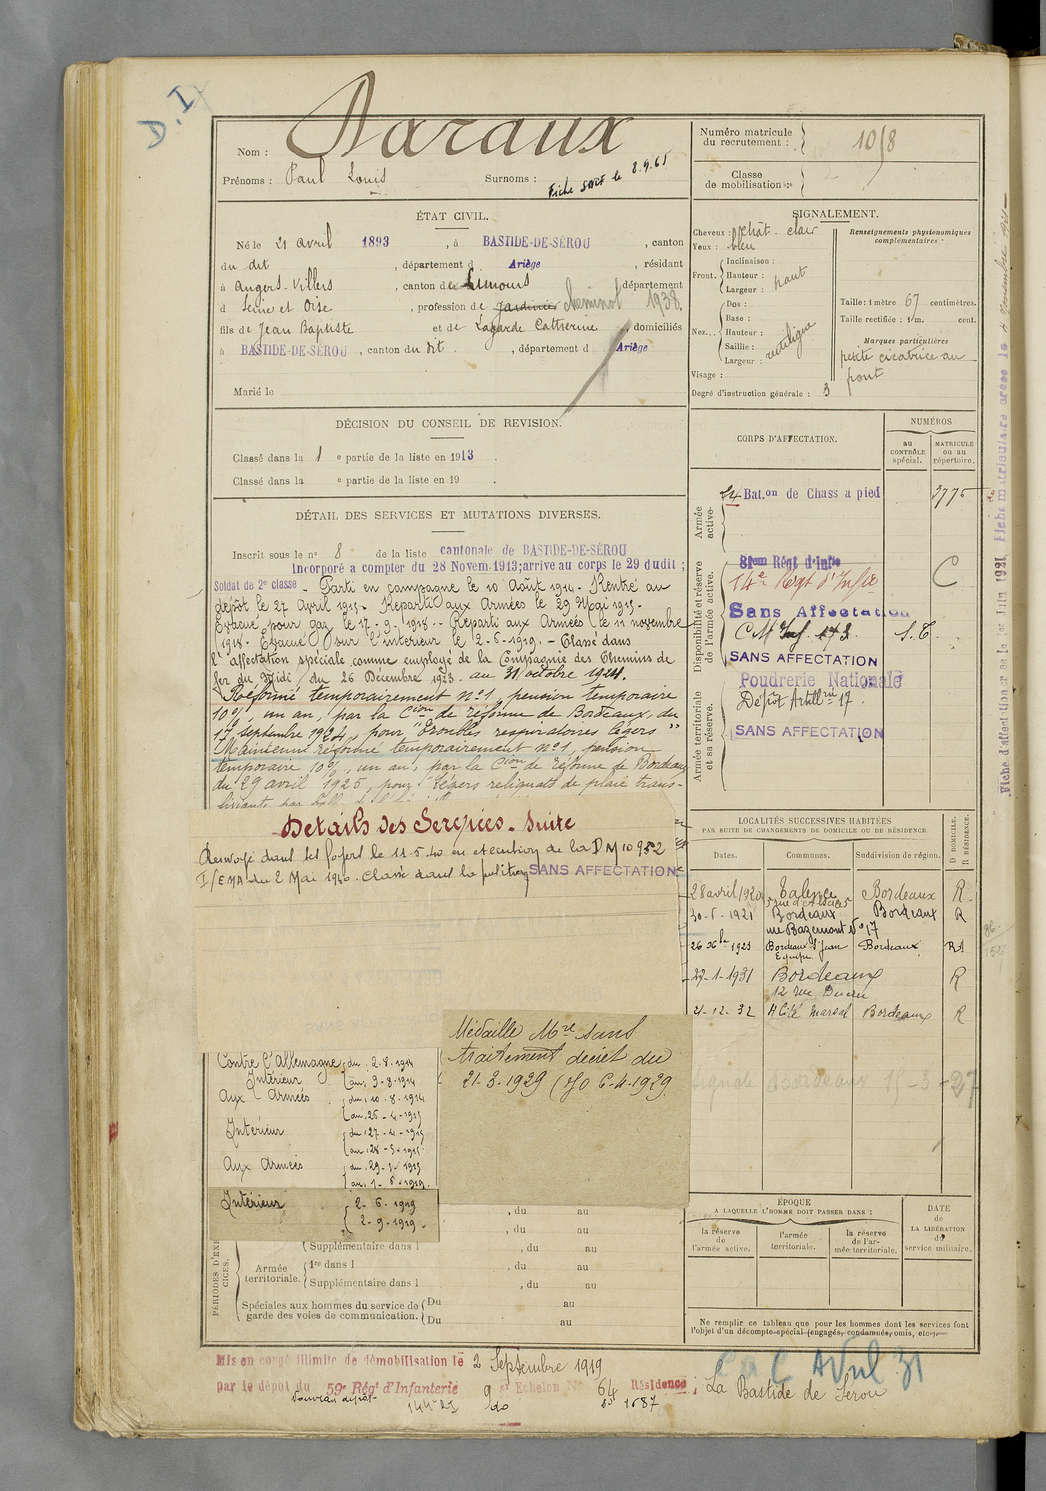 D.I
Nom : Daraux
Prénoms : Paul Louis Surnoms :
Fiche le 8.9.65
Numéro matricule du recrutement : 1058
Classe de mobilisation :
ÉTAT CIVIL.
Né le 21 avril 1893, à BASTIDE-DE-SÉROU, canton
du dit, département d Ariège, résidant
à Angers-Villers, canton de Limours département
d Seine et Oise, profession de jardinier cheminot 1938,
fils de Jean Baptiste et de Lagarde Catherine, domiciliés
à BASTIDE-DE-SÉROU, canton du dit, département d Ariège
Marié le
SIGNALEMENT.
Cheveux : chât. clair
Yeux : bleu
Front. Inclinaison :
Hauteur : haut
Largeur :
Nez... Dos :
Base :
Hauteur : rectiligne
Saillie :
Largeur :
Visage :
Degré d'instruction générale : 3
Renseignements physionomiques complémentaires :
Taille : 1 mètre 67 centimètres.
Taille rectifiée : 1 m. cent.
Marques particulières
petite cicatrice au
front
DÉCISION DU CONSEIL DE REVISION.
Classé dans la 1 e partie de la liste en 1913.
Classé dans la e partie de la liste en 19 .
DÉTAIL DES SERVICES ET MUTATIONS DIVERSES.
Inscrit sous le n° 8 de la liste cantonale de BASTIDE-DE-SÉROU
Incorporé a compter du 28 Novem. 1913; arrive au corps le 29 dudit ;
Soldat de 2e classe - Parti en campagne le 10 Août 1914 - Rentré au
dépôt le 27 Avril 1915 - Reparti aux Armées le 29 Mai 1915 -
Evacué pour gaz le 17-9-1918 - Reparti aux Armées le 11 novembre
1918 - Evacué sur l'intérieur le 2-6-1919. - Classé dans
l'affectation spéciale comme employé de la Compagnie des Chemins de
fer du Midi, du 26 Décembre 1923 au 31 octobre 1924.
Réformé temporairement n°1, pension temporaire
10%, un an, par la Cion de réforme de Bordeaux, du
17 septembre 1924, pour "troubles respiratoires légers"
Maintenu réformé temporairement n°1, pension
temporaire 10%, un an, par la Cion de réforme de Bordeaux
du 29 avril 1925, pour "légers reliquats de plaie trans-
Détails des Services - Suite
Renvoyé dans ses foyers le 11-5-40 en exécution de la DM 10952
I/EMA du 2 Mai 1940. Classé dans la position SANS AFFECTATION
CORPS D'AFFECTATION.
NUMÉROS
au CONTRÔLE spécial.
MATRICULE ou au répertoire.
Armée active.
24 Bat.on de Chass a pied 3775
Disponibilité et réserve de l'armée active.
81eme Régt d'Infie
14e Regt d'Infie C
Sans Affectation
C M Inf. 173 S.T.
SANS AFFECTATION
Armée territoriale et sa réserve.
Poudrerie Nationale
Dépôt Artill 17.
SANS AFFECTATION
LOCALITÉS SUCCESSIVES HABITÉES
PAR SUITE DE CHANGEMENTS DE DOMICILE OU DE RÉSIDENCE
Dates. Communes. Subdivision de région. D DOMICILE. R RÉSIDENCE.
28 avril 1920 Talence Bordeaux R
30-5-1921 Bordeaux Bordeaux R
rue Bazemont N° 17
26 Xbre 1923 Bordeaux St Jean Bordeaux R
27-1-1931 Bordeaux R
12 rue
21-12-32 Bordeaux R
Signale Bordeaux 15-3-27
Médaille Mre sans
traitement décret du
21-3-1929 (JO 6-4-1929
Contre l'Allemagne, du 2-8-1914
Intérieur au 9-8-1914
Aux Armées du 10-8-1914
au 26-4-1915
Intérieur du 27-4-1915
au 28-5-1915
Aux Armées du 29-5-1915
au 1-6-1919.
Intérieur 2-6-1919
2-9-1919.
PÉRIODES D'EXERCICES.
, du au
, du au
Supplémentaire dans l , du au
Armée territoriale. 1re dans l , du au
Supplémentaire dans l , du au
Spéciales aux hommes du service de garde des voies de communication. Du au
Du au
ÉPOQUE
A LAQUELLE L'HOMME DOIT PASSER DANS :
la réserve de l'armée active.
l'armée territoriale.
la réserve de l'armée territoriale.
DATE de LA LIBÉRATION du service militaire.
Ne remplir ce tableau que pour les hommes dont les services font
l'objet d'un décompte spécial (engagés, condamnés, omis, etc.).
Mis en congé illimité de démobilisation le 2 Septembre 1919
par le dépôt du 59e Régt d'Infanterie 9 e Echelon N° 64 Résidence : La Bastide de Serou
1687
Avril 31
Fiche d'affectation créée le 1er Juin 1921 Fiche matriculaire créée le 4 novembre